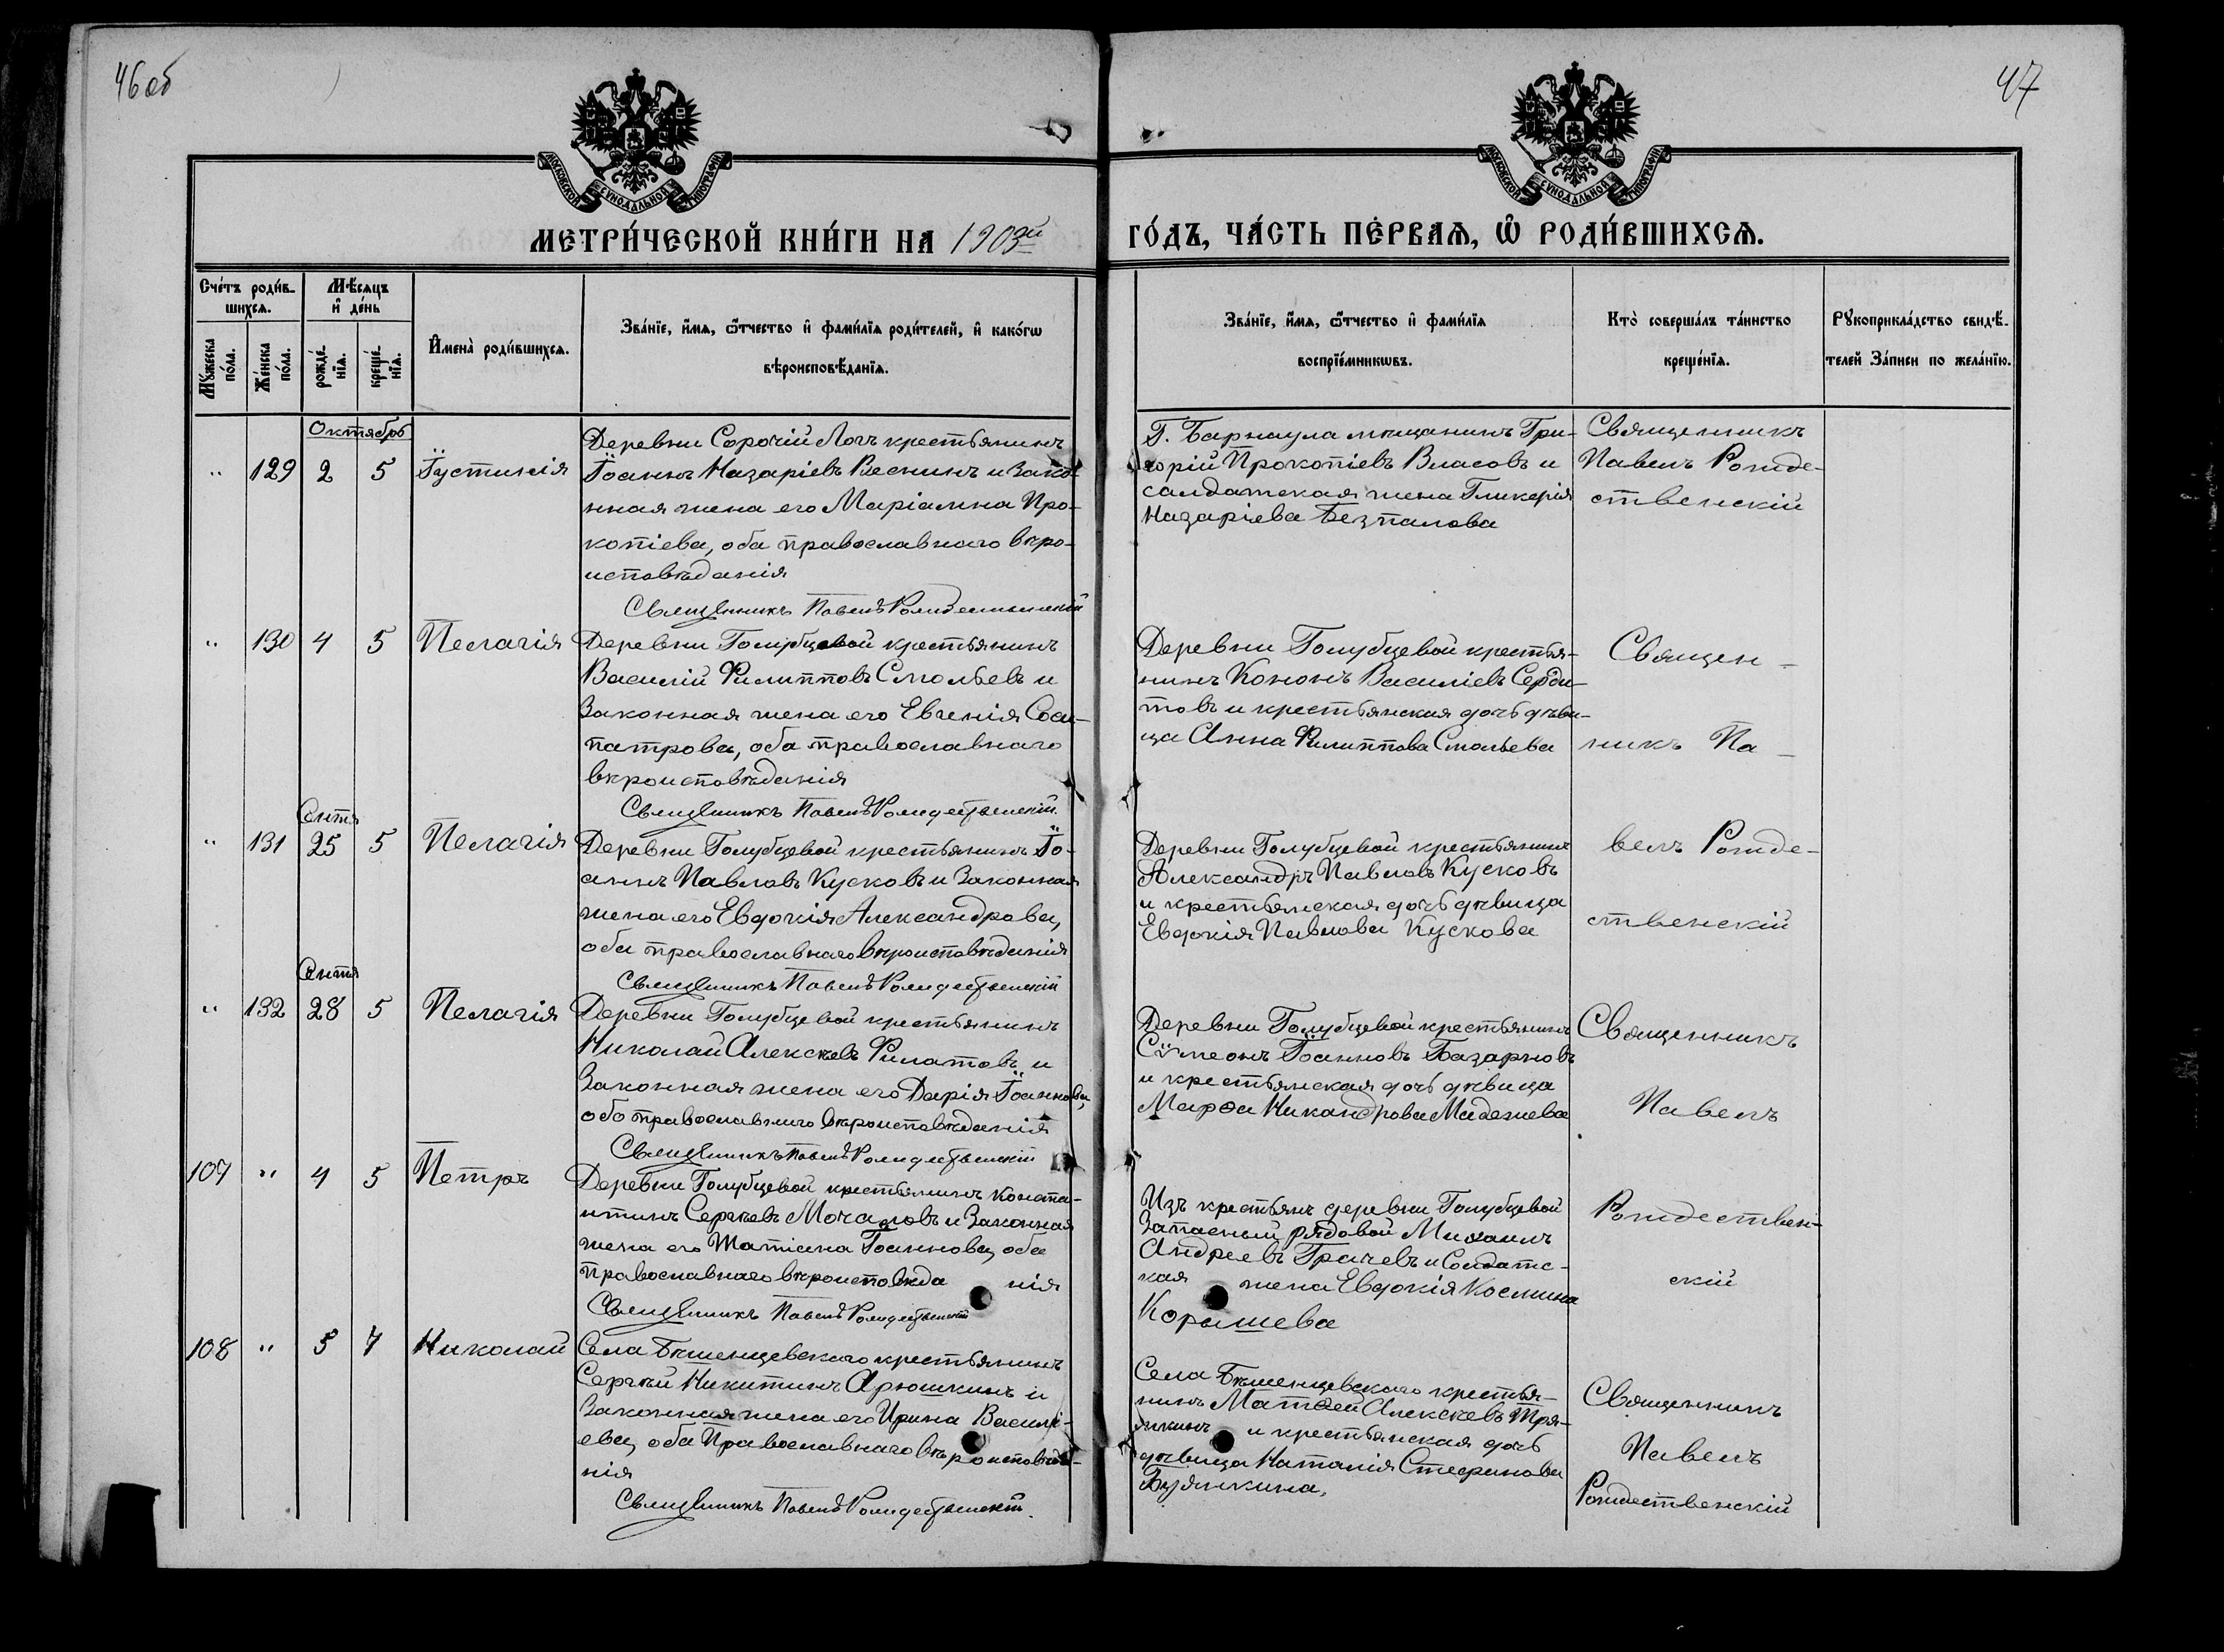 46об
47
МОСКОВСКОЙ СѴНОДАЛЬНОЙ ТИПОГРАФІИ
МОСКОВСКОЙ СѴНОДАЛЬНОЙ ТИПОГРАФІИ
МЕТРИ́ЧЕСКОЙ КНИ́ГИ НА 1903й
ГО́ДЪ, ЧА́СТЬ ПЕ́РВАѦ, Ѡ҆ РОДИ́ВШИХСѦ.
Сче́тъ роди́в-
шихсѧ.
Мѣ́сѧцъ
и҆ де́нь
Мꙋ́жеска
по́ла.
Же́нска
по́ла.
рожде́-
нїѧ.
креще́-
нїѧ.
И҆мена̀ роди́вшихсѧ.
Зва́нїе, и҆́мѧ, ѻ҆́тчество и҆ фами́лїѧ роди́телей, и҆ како́гѡ
вѣроисповѣ́данїѧ.
Зва́нїе, и҆́мѧ, ѻ҆́тчество и҆ фами́лїѧ
воспрїе́мникѡвъ.
Кто̀ соверша́лъ та́инство
креще́нїѧ.
Рꙋкоприкла́дство свидѣ́-
телей За́писи по жела́нїю.
Октябрь
„ 129 2 5 Іустинія
Деревни Сорочій Логъ крестьянинъ
Іоаннъ Назаріевъ Веснинъ и зако-
нная жена его Маріамна Про-
копіева, оба православнаго вѣро-
исповѣданія
Священникъ Павелъ Рождественскій
Г. Барнаула мѣщанинъ Гри-
горій Прокопіевъ Власовъ и
салдатская жена Гликерія
Назаріева Безпалова
Священникъ
Павелъ Рожде-
ственскій
„ 130 4 5 Пелагія
Деревни Голубцевой крестьянинъ
Василій Филипповъ Смольевъ и
Законная жена его Евгенія Соси-
патрова, оба православнаго
вѣроисповѣданія
Священникъ Павелъ Рождественскій
Деревни Голубцевой крестья-
нинъ Кононъ Василіевъ Серди-
товъ и крестьянская дочь дѣви-
ца Анна Филиппова Смольева
Священ-
никъ Па-
Сентя
„ 131 25 5 Пелагія
Деревни Голубцевой крестьянинъ Іо-
аннъ Павловъ Кусковъ и Законная
жена его Евдокія Александрова,
оба православнаго вѣроисповѣданія
Священникъ Павелъ Рождественскій
Деревни Голубцевой крестьянинъ
Александръ Павловъ Кусковъ
и крестьянская дочь дѣвица
Евдокія Павлова Кускова
велъ Рожде-
ственскій
Сентя
„ 132 28 5 Пелагія
Деревни Голубцевой крестьянинъ
Николай Алексѣевъ Филатовъ и
Законная жена его Дарія Іоаннова,
обо православнаго вѣроисповѣданія
Священникъ Павелъ Рождественскій
Деревни Голубцевой крестьянинъ
Сѵмеонъ Іоанновъ Базарновъ
и крестьянская дочь дѣвица
Марѳа Никандрова
Священникъ
Павелъ
107 „ 4 5 Петръ
Деревни Голубцевой крестьянинъ Конста-
нтинъ Сергѣевъ Мочаловъ и Законная
жена его Татіана Іоаннова, оба
православнаго вѣроисповѣда нія
Священникъ Павелъ Рождественскій
Изъ крестьянъ деревни Голубцевой
Запасный рядовой Михаилъ
Андреевъ Грачевъ и Солдатс-
кая жена Евдокія Космина
Корышева
Рождествен-
скій
108 „ 5 7 Николай
Села Бѣшенцевскаго крестьянинъ
Сергѣй Никитинъ Арюшкинъ и
Законная жена его Ирина Василі-
ева, оба Православнаго вѣроисповѣда-
нія
Священникъ Павелъ Рождественскій
Села Бѣшенцевскаго крестья-
нинъ Матѳей Алексѣевъ Тря-
пкинъ и крестьянская дочь
дѣвица Наталія Стефанова
Бузянкина,
Священникъ
Павелъ
Рождественскій